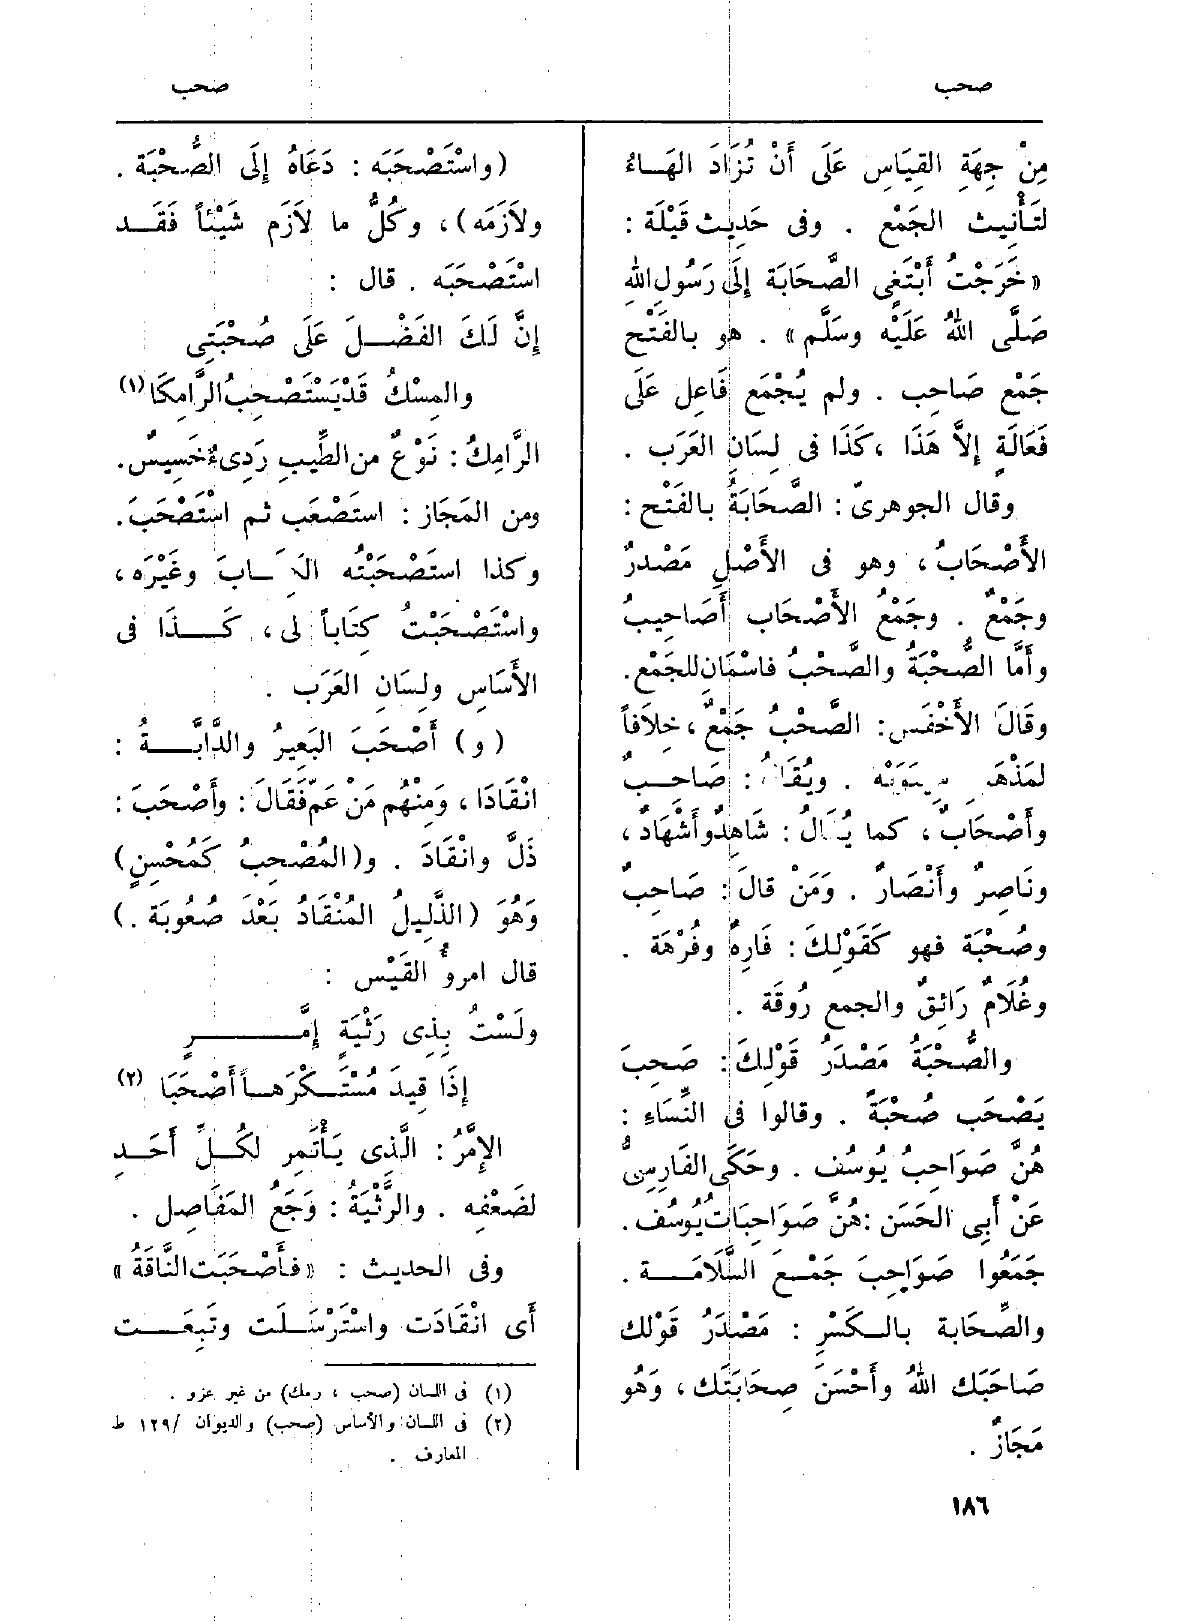 صحب
صحب
مِنْ جِهَةِ القِيَاسِ عَلَى أَنْ تُزَادَ الهَـاءُ
لتَـأْنِيث الجَمْع . وفى حَدِيث قَيْلَة :
«خَرَجْتُ أَبْتَغِى الصَّحَابَة إِلَى رَسُولِ اللهِ
صَلَّى اللهُ عَلَيْه وسَلَّم» . هو بالفَتْح
جَمْع صَاحِب . ولم يُجْمَع فَاعِل عَلَى
فَعَالَةٍ إِلاَّ هَذَا ، كَذَا فى لِسَانِ العَرَب .
وقال الجوهرىّ : الصَّحَابَةُ بالفَتْح :
الأَصْحَابُ ، وهو فى الأَصْلِ مَصْدَرٌ
وجَمْعٌ . وجَمْعُ الأَصْحَاب أَصَاحِيبُ
وأَمَّا الصُّحْبَةُ والصَّحْبُ فاسْمَانِ للجَمْع.
وقَالَ الأَخْفَس : الصَّحْبُ جَمْعٌ ، خِلَافاً
لمَذْهَب سِيبَوَيْه . ويُقَالُ : صَاحِـبٌ
وأَصْحَابٌ ، كما يُقَالُ : شَاهِدٌ وأَشْهَادٌ ،
ونَاصِرٌ وأَنْصَارٌ . وَمَنْ قالَ : صَاحِبٌ
وصُحْبَة فهو كَقَوْلِكَ : فَارِهٌ وفُرْهَة .
وغُلَامٌ رَائِقٌ والجمع رُوقَة .
والصُّحْبَةُ مَصْدَرُ قَوْلِكَ : صَحِبَ
يَصْحَب صُحْبَةً . وقالوا فى النِّسَاءِ :
هُنَّ صَوَاحِبُ يُوسُف . وحَكَى الفَارِسِىُّ
عَنْ أَبِى الحَسَن : هُنَّ صَوَاحِبَاتُ يُوسُف .
جَمَعُوا صَوَاحِبَ جَمْـعَ السَّلَامَـة .
والصِّحَابة بالـكَسْرِ : مَصْدَرُ قَوْلك
صَاحَبَك اللهُ وأَحْسَنَ صِحَابَتَك ، وَهُو
مَجَازٌ .
(واسْتَصْحَبَه : دَعَاهُ إِلَى الصُّحْبَة .
ولاَزَمَه) ، وكُلُّ ما لاَزَم شَيْئاً فَقَـد
اسْتَصْحَبَه . قال :
إِنَّ لَكَ الفَضْـلَ عَلَى صُحْبَتِى
والمِسْكُ قَدْ يَسْتَصْحِبُ الرَّامِكَا (١)
الرَّامِكُ : نَوْعٌ من الطِّيبِ رَدِىءٌ خَسِيسٌ.
ومن المَجَاز : استَصْعَب ثم اسْتَصْحَبَ.
وكذا استَصْحَبْتُه وغَيْرَه ،
واسْتَصْحَبْتُ كِتَاباً لى ، كَـذَا فى
الأَسَاسِ ولِسَانِ العَرَب .
(و) أَصْحَبَ البَعِيرُ والدَّابَّـةُ :
انْقَادَا ، وَمِنْهُم مَنْ عَمّ فَقَالَ : وأَصْحَبَ :
ذَلَّ وانْقَادَ . و(المُصْحِبُ كَمُحْسِنٍ)
وَهُوَ (الذَّلِيلُ المُنْقَادُ بَعْدَ صُعُوبَة .)
قال امرؤُ القَيْس :
ولَسْتُ بِذِى رَثْيَةٍ إِمَّــرٍ
إِذَا قِيدَ مُسْتَـكْرَهـاً أَصْحَبَا (٢)
الإِمَّرُ : الَّذِى يَأْتَمِر لكُـلِّ أَحَـدٍ
لضَعْفِه . والرَّثْيَةُ : وَجَعُ المَفَاصِل .
وفى الحديث : «فأَصْحَبَت النَّاقَةُ»
أَى انْقَادَت واسْتَرْسَـلَت وتَبِعَـت
(١) فى اللسان (صحب ، رمك) من غير عزو .
(٢) فى اللسان والأساس (صحب) والديوان /١٢٩ ط
المعارف .
١٨٦